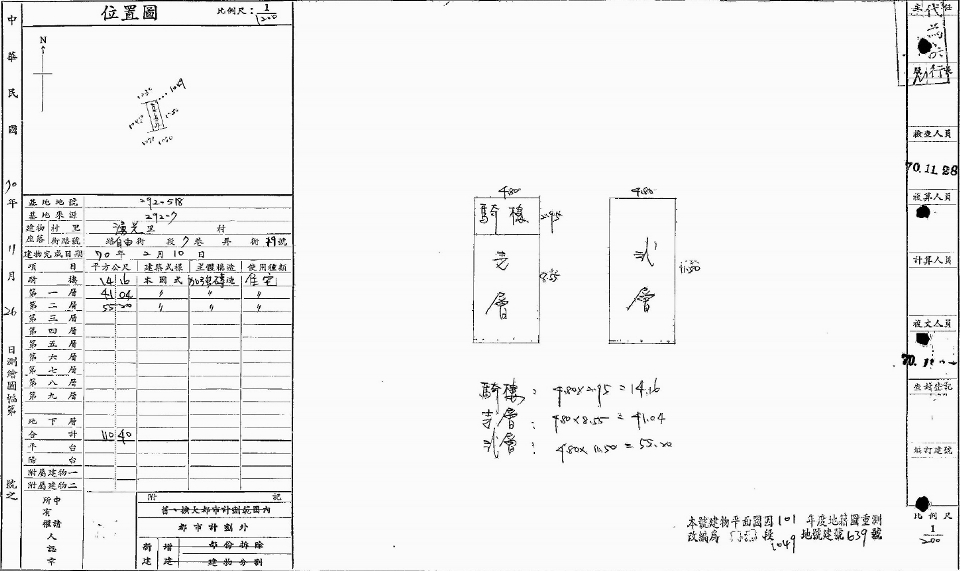 中華民國70年11月26日測繪圖幅第 號之
位置圖
比例尺:1/1200
N
1049
基地地號 292-518
基地來源 292-7
建物坐落 村里 里 村
街路號 路自由街 段7巷 弄 衖 號
建物完成日期 70年2月10日
項目 平方公尺 建築式樣 主體構造 使用種類
騎樓 14 16 本國式 加強磚造 住宅
第一層 41 04 〃 〃 〃
第二層 55 20 〃 〃 〃
第三層
第四層
第五層
第六層
第七層
第八層
第九層
地下層
合計 110 40
平台
陽台
附屬建物一
附屬建物二
附記
舊、擴大都市計劃範圍內
都市計劃外
新建 增建 部份拆除
建物分割
4.80
騎樓
2.95
壱層
8.55
4.80
弍層
11.50
騎樓:4.80×2.95=14.16
壱層:4.80×8.55=41.04
弍層:4.80×11.50=55.20
本號建物平面圖因101年度地籍圖重測
改編為 段1049地號建號639號
檢查人員
70.11.28
核算人員
計算人員
校文人員
登記
編訂建號
比例尺
1/200